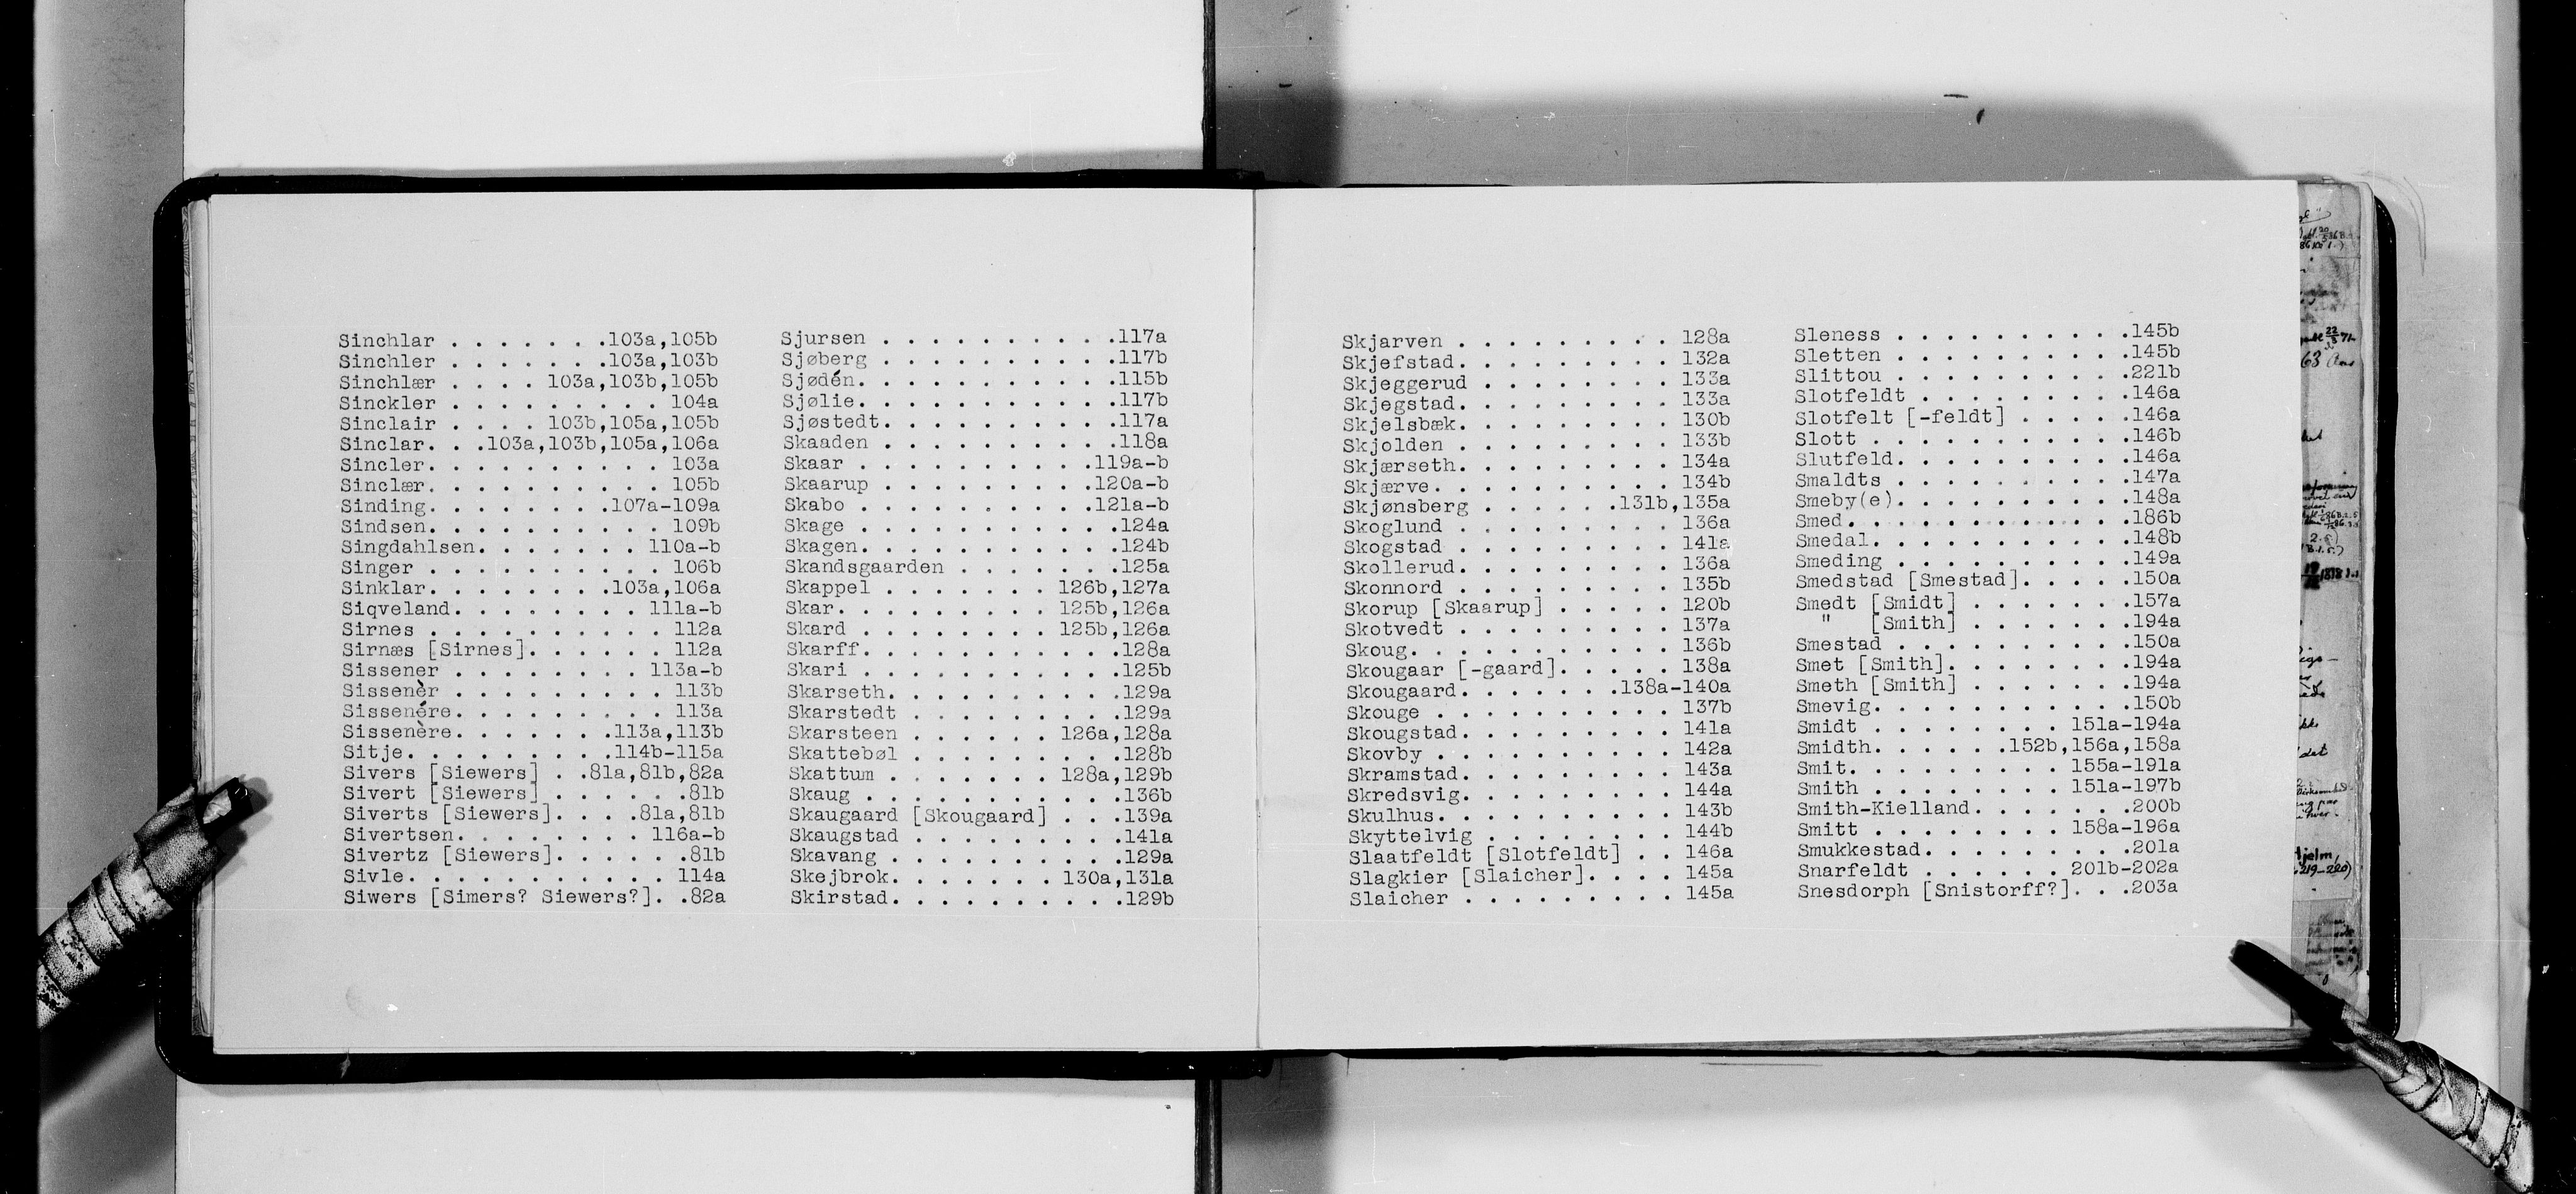 Sinchlar . . . . . . .103a,105b
Sinchler . . . . . . .103a,103b
Sinchlær . . . . 103a,103b,105b
Sinckler . . . . . . . . . 104a
Sinclair . . . . 103b,105a,105b
Sinclar. . .103a,103b,105a,106a
Sincler. . . . . . . . . . 103a
Sinclær. . . . . . . . . . 105b
Sinding. . . . . . . .107a-109a
Sindsen. . . . . . . . . . 109b
Singdahlsen. . . . . . . 110a-b
Singer . . . . . . . . . . 106b
Sinklar. . . . . . . .103a,106a
Siqveland. . . . . . . . 111a-b
Sirnes . . . . . . . . . . 112a
Sirnæs [Sirnes]. . . . . . 112a
Sissener . . . . . . . . 113a-b
Sissenèr . . . . . . . . . 113b
Sissenére. . . . . . . . . 113a
Sissenère. . . . . . .113a,113b
Sitje. . . . . . . . .114b-115a
Sivers [Siewers] . .81a,81b,82a
Sivert [Siewers] . . . . . .81b
Siverts [Siewers]. . . .81a,81b
Sivertsen. . . . . . . . 116a-b
Sivertz [Siewers]. . . . . .81b
Sivle. . . . . . . . . . . 114a
Siwers [Simers? Siewers?]. .82a
Sjursen . . . . . . . . . .117a
Sjøberg . . . . . . . . . .117b
Sjødén. . . . . . . . . . .115b
Sjølie. . . . . . . . . . .117b
Sjøstedt. . . . . . . . . .117a
Skaaden . . . . . . . . . .118a
Skaar . . . . . . . . . .119a-b
Skaarup . . . . . . . . .120a-b
Skabo . . . . . . . . . .121a-b
Skage . . . . . . . . . . .124a
Skagen. . . . . . . . . . .124b
Skandsgaarden . . . . . . .125a
Skappel . . . . . . . 126b,127a
Skar. . . . . . . . . 125b,126a
Skard . . . . . . . . 125b,126a
Skarff. . . . . . . . . . .128a
Skari . . . . . . . . . . .125b
Skarseth. . . . . . . . . .129a
Skarstedt . . . . . . . . .129a
Skarsteen . . . . . . 126a,128a
Skattebøl . . . . . . . . .128b
Skattum . . . . . . . 128a,129b
Skaug . . . . . . . . . . .136b
Skaugaard [Skougaard] . . .139a
Skaugstad . . . . . . . . .141a
Skavang . . . . . . . . . .129a
Skejbrok. . . . . . . 130a,131a
Skirstad. . . . . . . . . .129b
Skjarven . . . . . . . . . 128a
Skjefstad. . . . . . . . . 132a
Skjeggerud . . . . . . . . 133a
Skjegstad. . . . . . . . . 133a
Skjelsbæk. . . . . . . . . 130b
Skjolden . . . . . . . . . 133b
Skjærseth. . . . . . . . . 134a
Skjærve. . . . . . . . . . 134b
Skjønsberg . . . . . .131b,135a
Skoglund . . . . . . . . . 136a
Skogstad . . . . . . . . . 141a
Skollerud. . . . . . . . . 136a
Skonnord . . . . . . . . . 135b
Skorup [Skaarup] . . . . . 120b
Skotvedt . . . . . . . . . 137a
Skoug. . . . . . . . . . . 136b
Skougaar [-gaard]. . . . . 138a
Skougaard. . . . . . .138a-140a
Skouge . . . . . . . . . . 137b
Skougstad. . . . . . . . . 141a
Skovby . . . . . . . . . . 142a
Skramstad. . . . . . . . . 143a
Skredsvig. . . . . . . . . 144a
Skulhus. . . . . . . . . . 143b
Skyttelvig . . . . . . . . 144b
Slaatfeldt [Slotfeldt] . . 146a
Slagkier [Slaicher]. . . . 145a
Slaicher . . . . . . . . . 145a
Sleness . . . . . . . . . .145b
Sletten . . . . . . . . . .145b
Slittou . . . . . . . . . .221b
Slotfeldt . . . . . . . . .146a
Slotfelt [-feldt] . . . . .146a
Slott . . . . . . . . . . .146b
Slutfeld. . . . . . . . . .146a
Smaldts . . . . . . . . . .147a
Smeby(e). . . . . . . . . .148a
Smed. . . . . . . . . . . .186b
Smedal. . . . . . . . . . .148b
Smeding . . . . . . . . . .149a
Smedstad [Smestad]. . . . .150a
Smedt [Smidt] . . . . . . .157a
" [Smith] . . . . . . .194a
Smestad . . . . . . . . . .150a
Smet [Smith]. . . . . . . .194a
Smeth [Smith] . . . . . . .194a
Smevig. . . . . . . . . . .150b
Smidt . . . . . . . . 151a-194a
Smidth. . . . . .152b,156a,158a
Smit. . . . . . . . . 155a-191a
Smith . . . . . . . . 151a-197b
Smith-Kielland. . . . . . .200b
Smitt . . . . . . . . 158a-196a
Smukkestad. . . . . . . . .201a
Snarfeldt . . . . . . 201b-202a
Snesdorph [Snistorff?]. . .203a